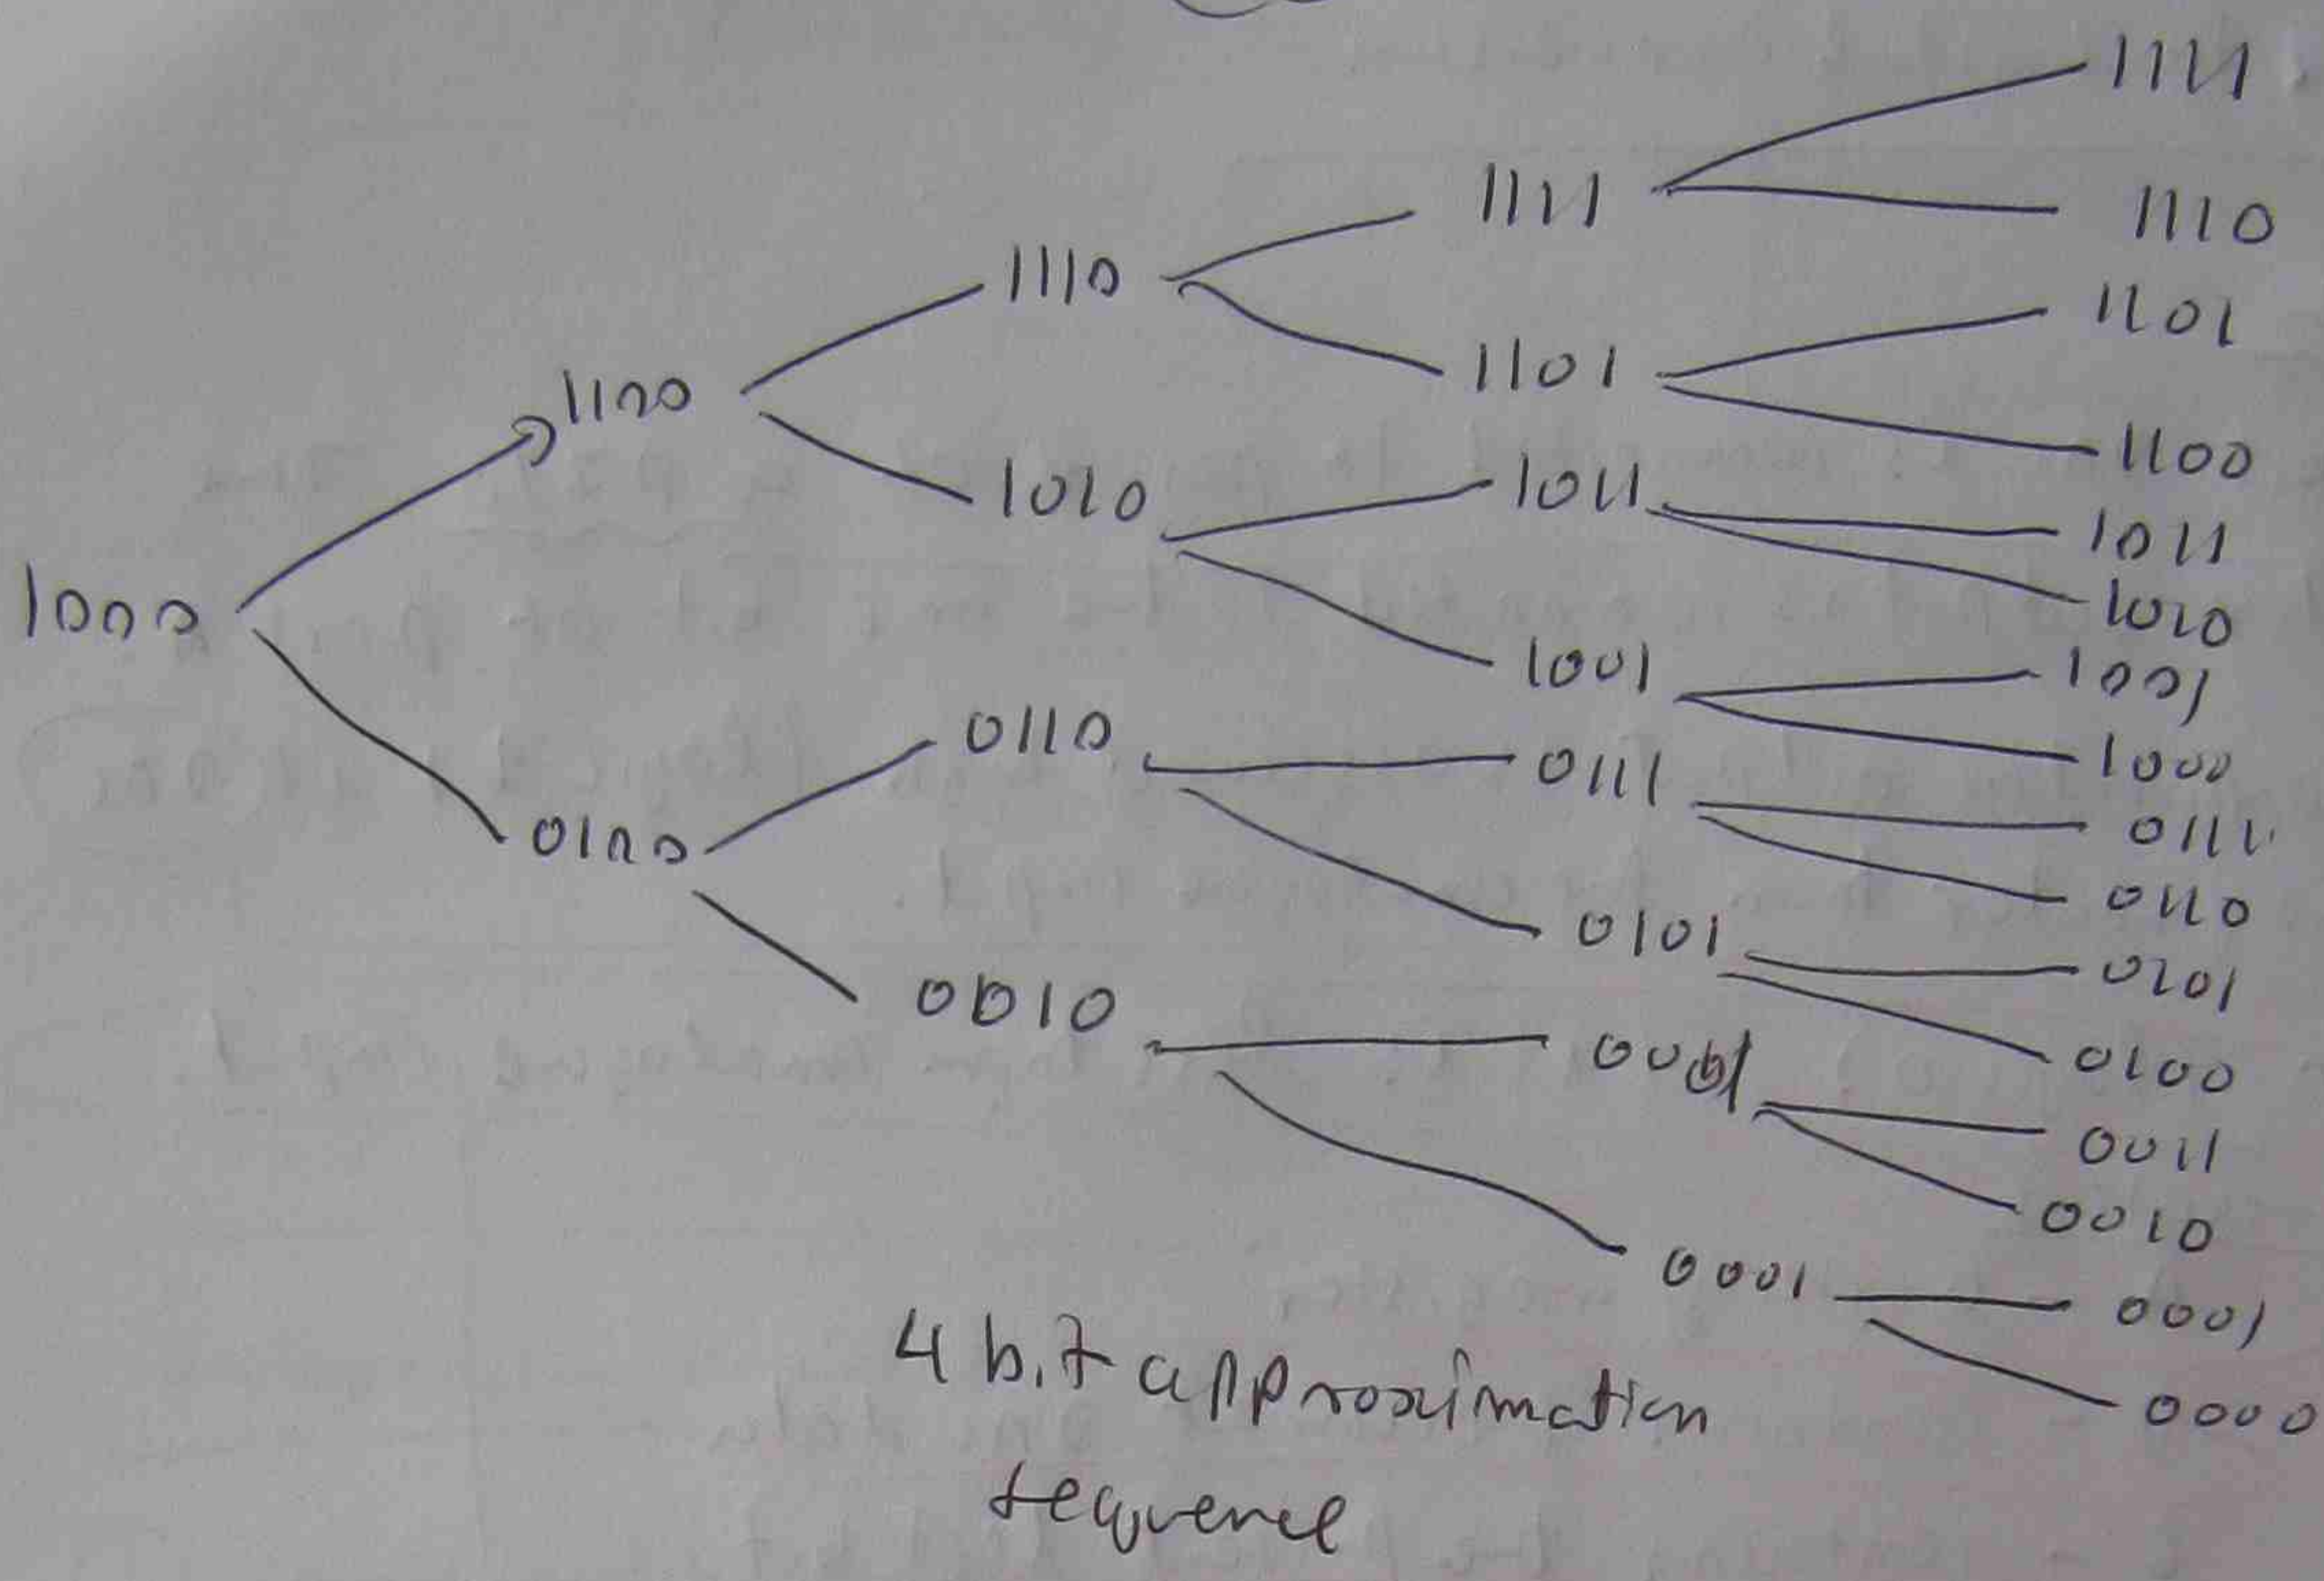 1000
1100
0100
1110
1010
0110
0010
1111
1101
1011
1001
0111
0101
0001
1111
1110
1101
1100
1011
1010
1001
1000
0111
0110
0101
0100
0011
0010
0001
0000
4 bit approximation
sequence